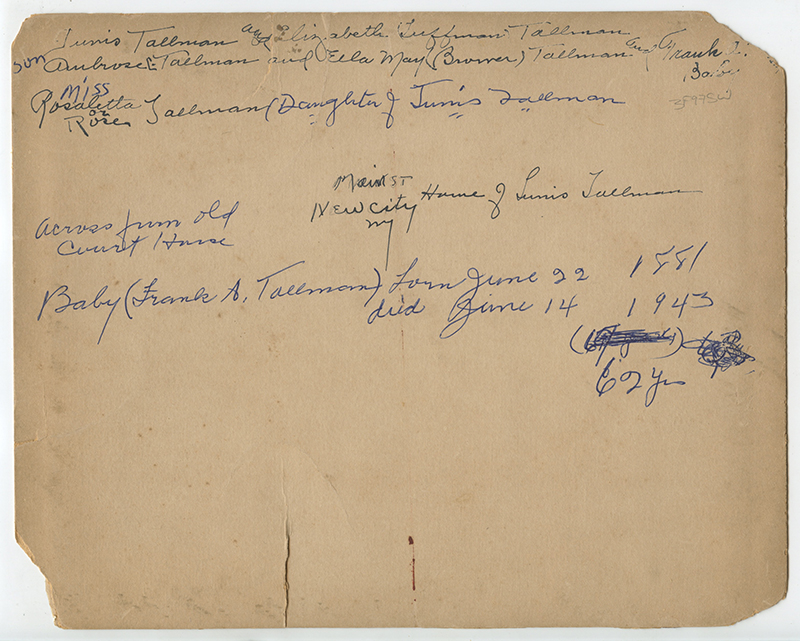 Tunis Tallman and Elizabeth Tuffman Tallman
son Ambrose E Tallman and Ella May (Brower) Tallman and Frank
Baby
Miss
Rosaletta Tallman (Daughter of Tunis Tallman
or
Rose
Main ST
New City Home of Tunis Tallman
NY
across from old
Court House
Baby (Frank A. Tallman) born June 22 1881
died June 14 1943
62 yrs